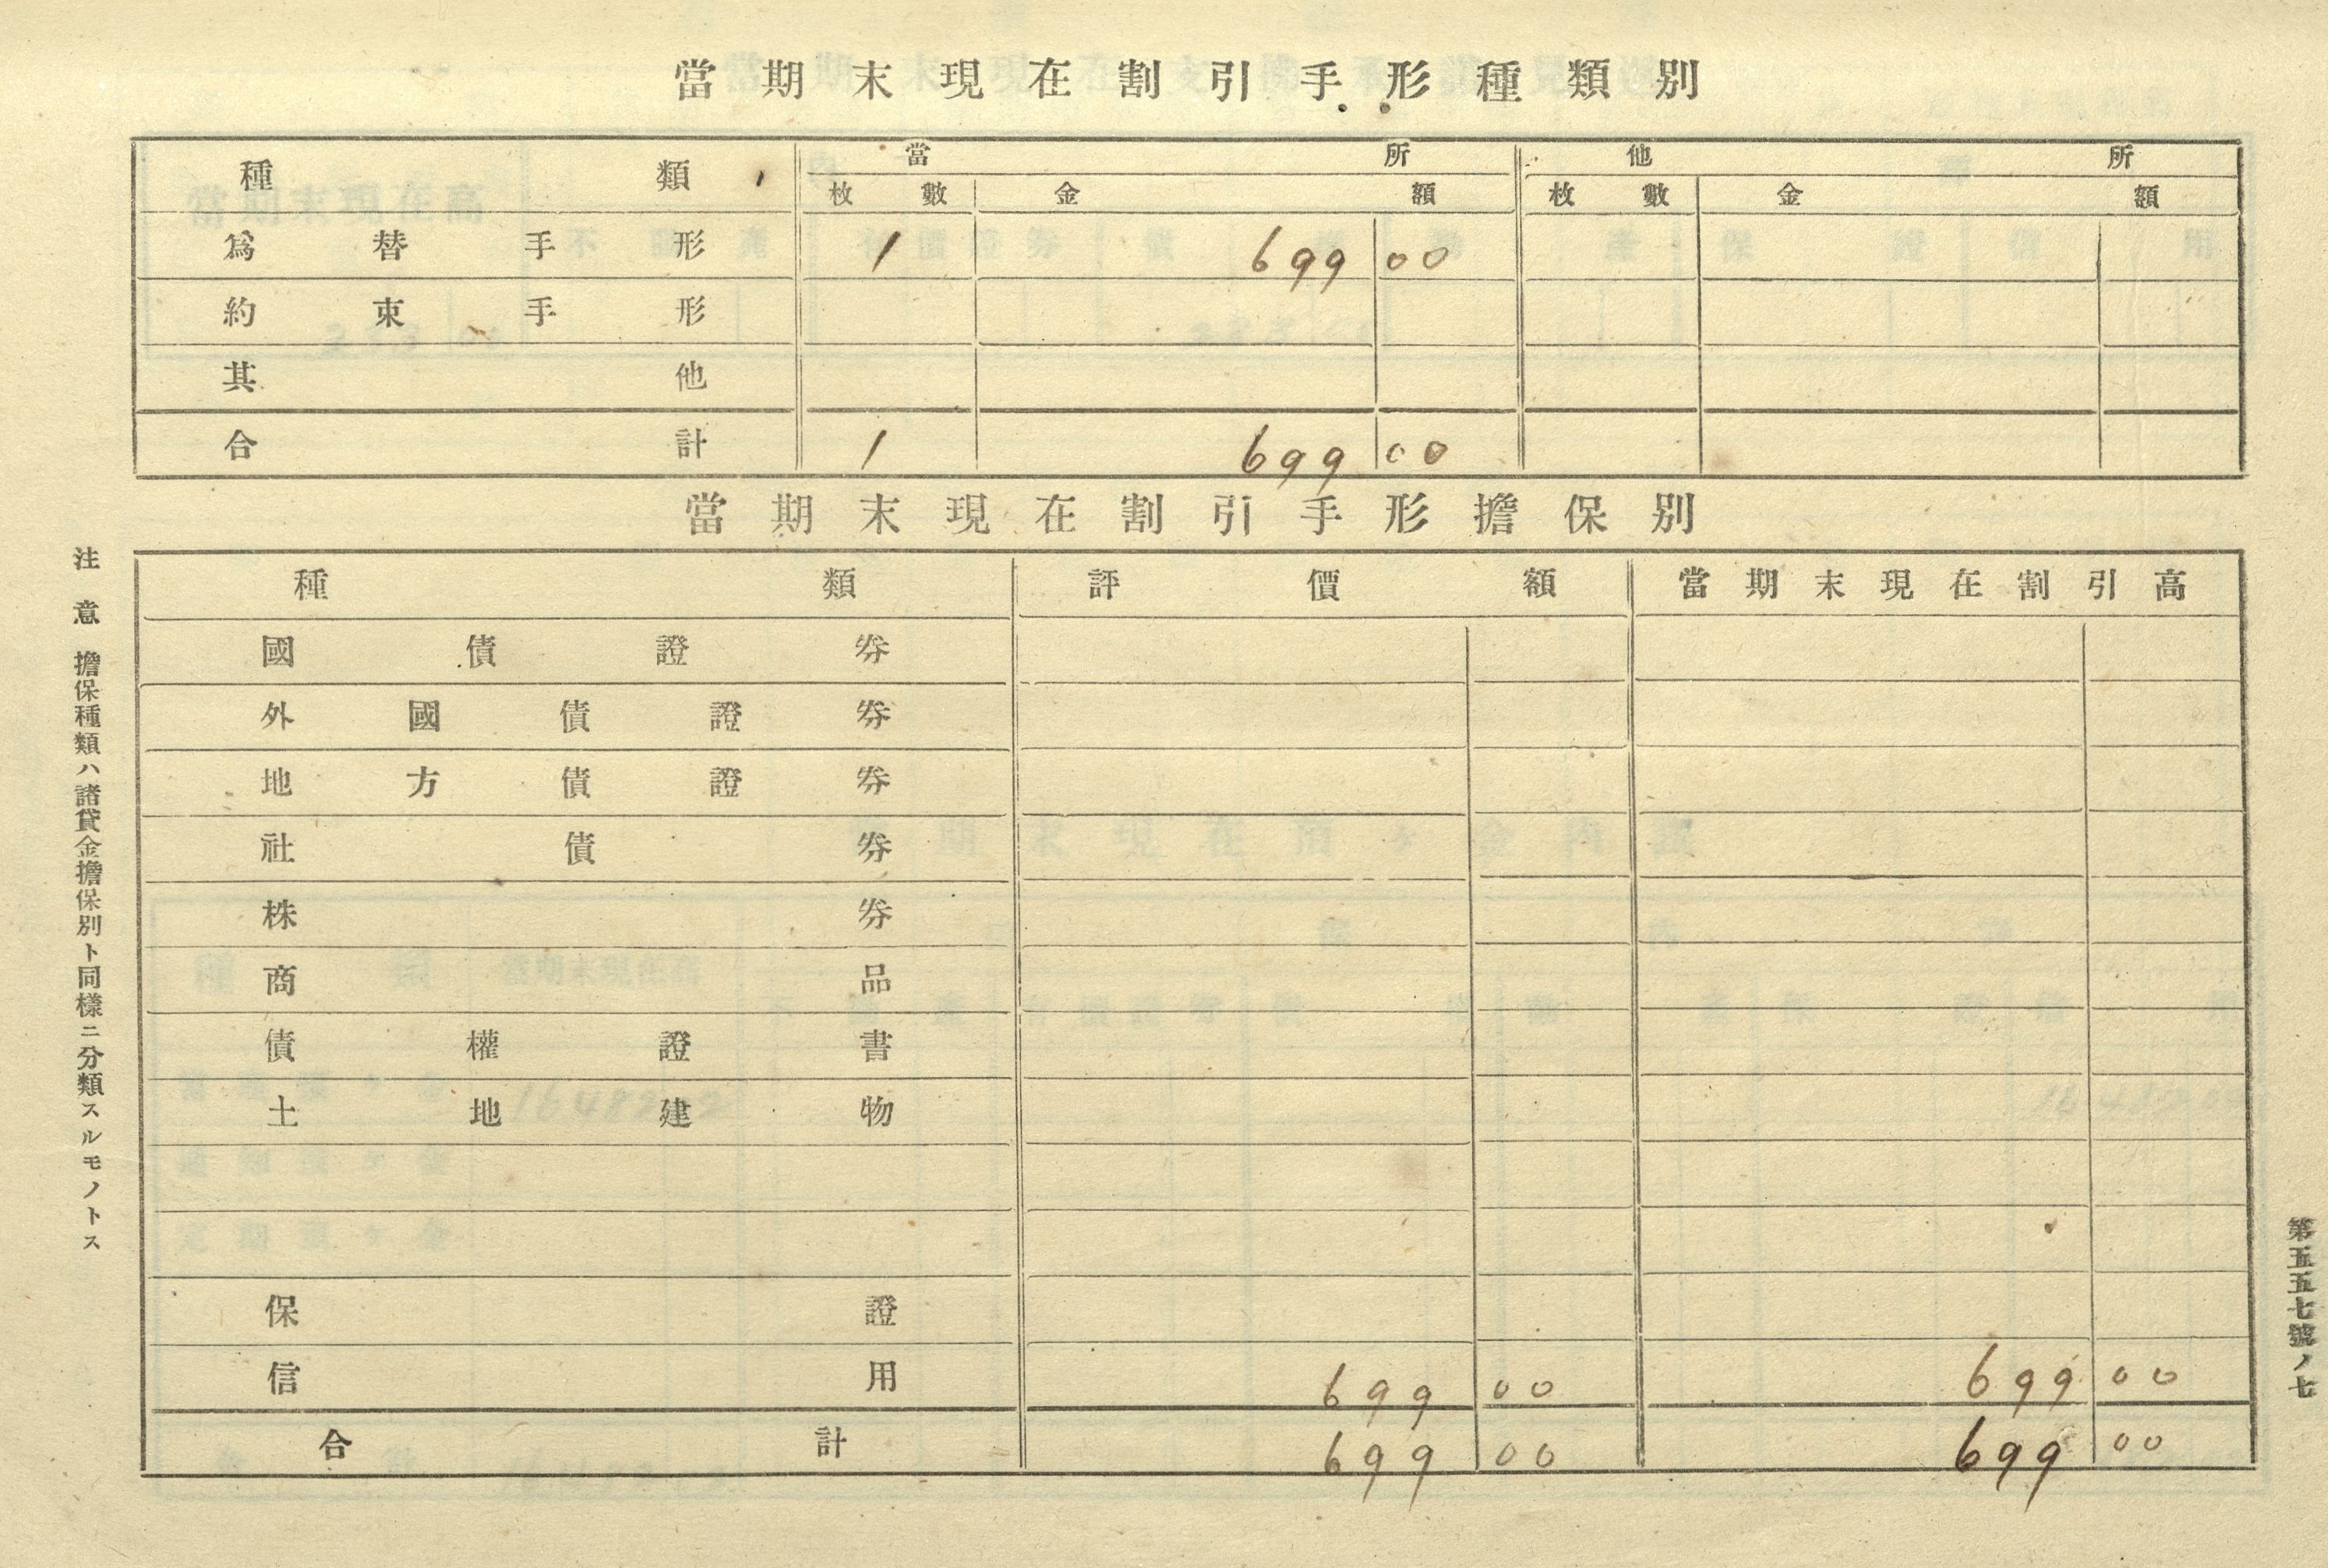 當期末現在割引手形種類別
種類 當所 他所
枚數 金額 枚數 金額
爲替手形 1 699 00
約束手形
其他
合計 1 699 00
當期末現在割引手形擔保別
種類 評價額 當期末現在割引高
國債證券
外國債證券
地方債證券
社債券
株券
商品
債權證書
土地建物
保證
信用 699 00 699 00
合計 699 00 699 00
注意 擔保種類ハ諸貸金擔保別ト同樣ニ分類スルモノトス
第五五七號ノ七